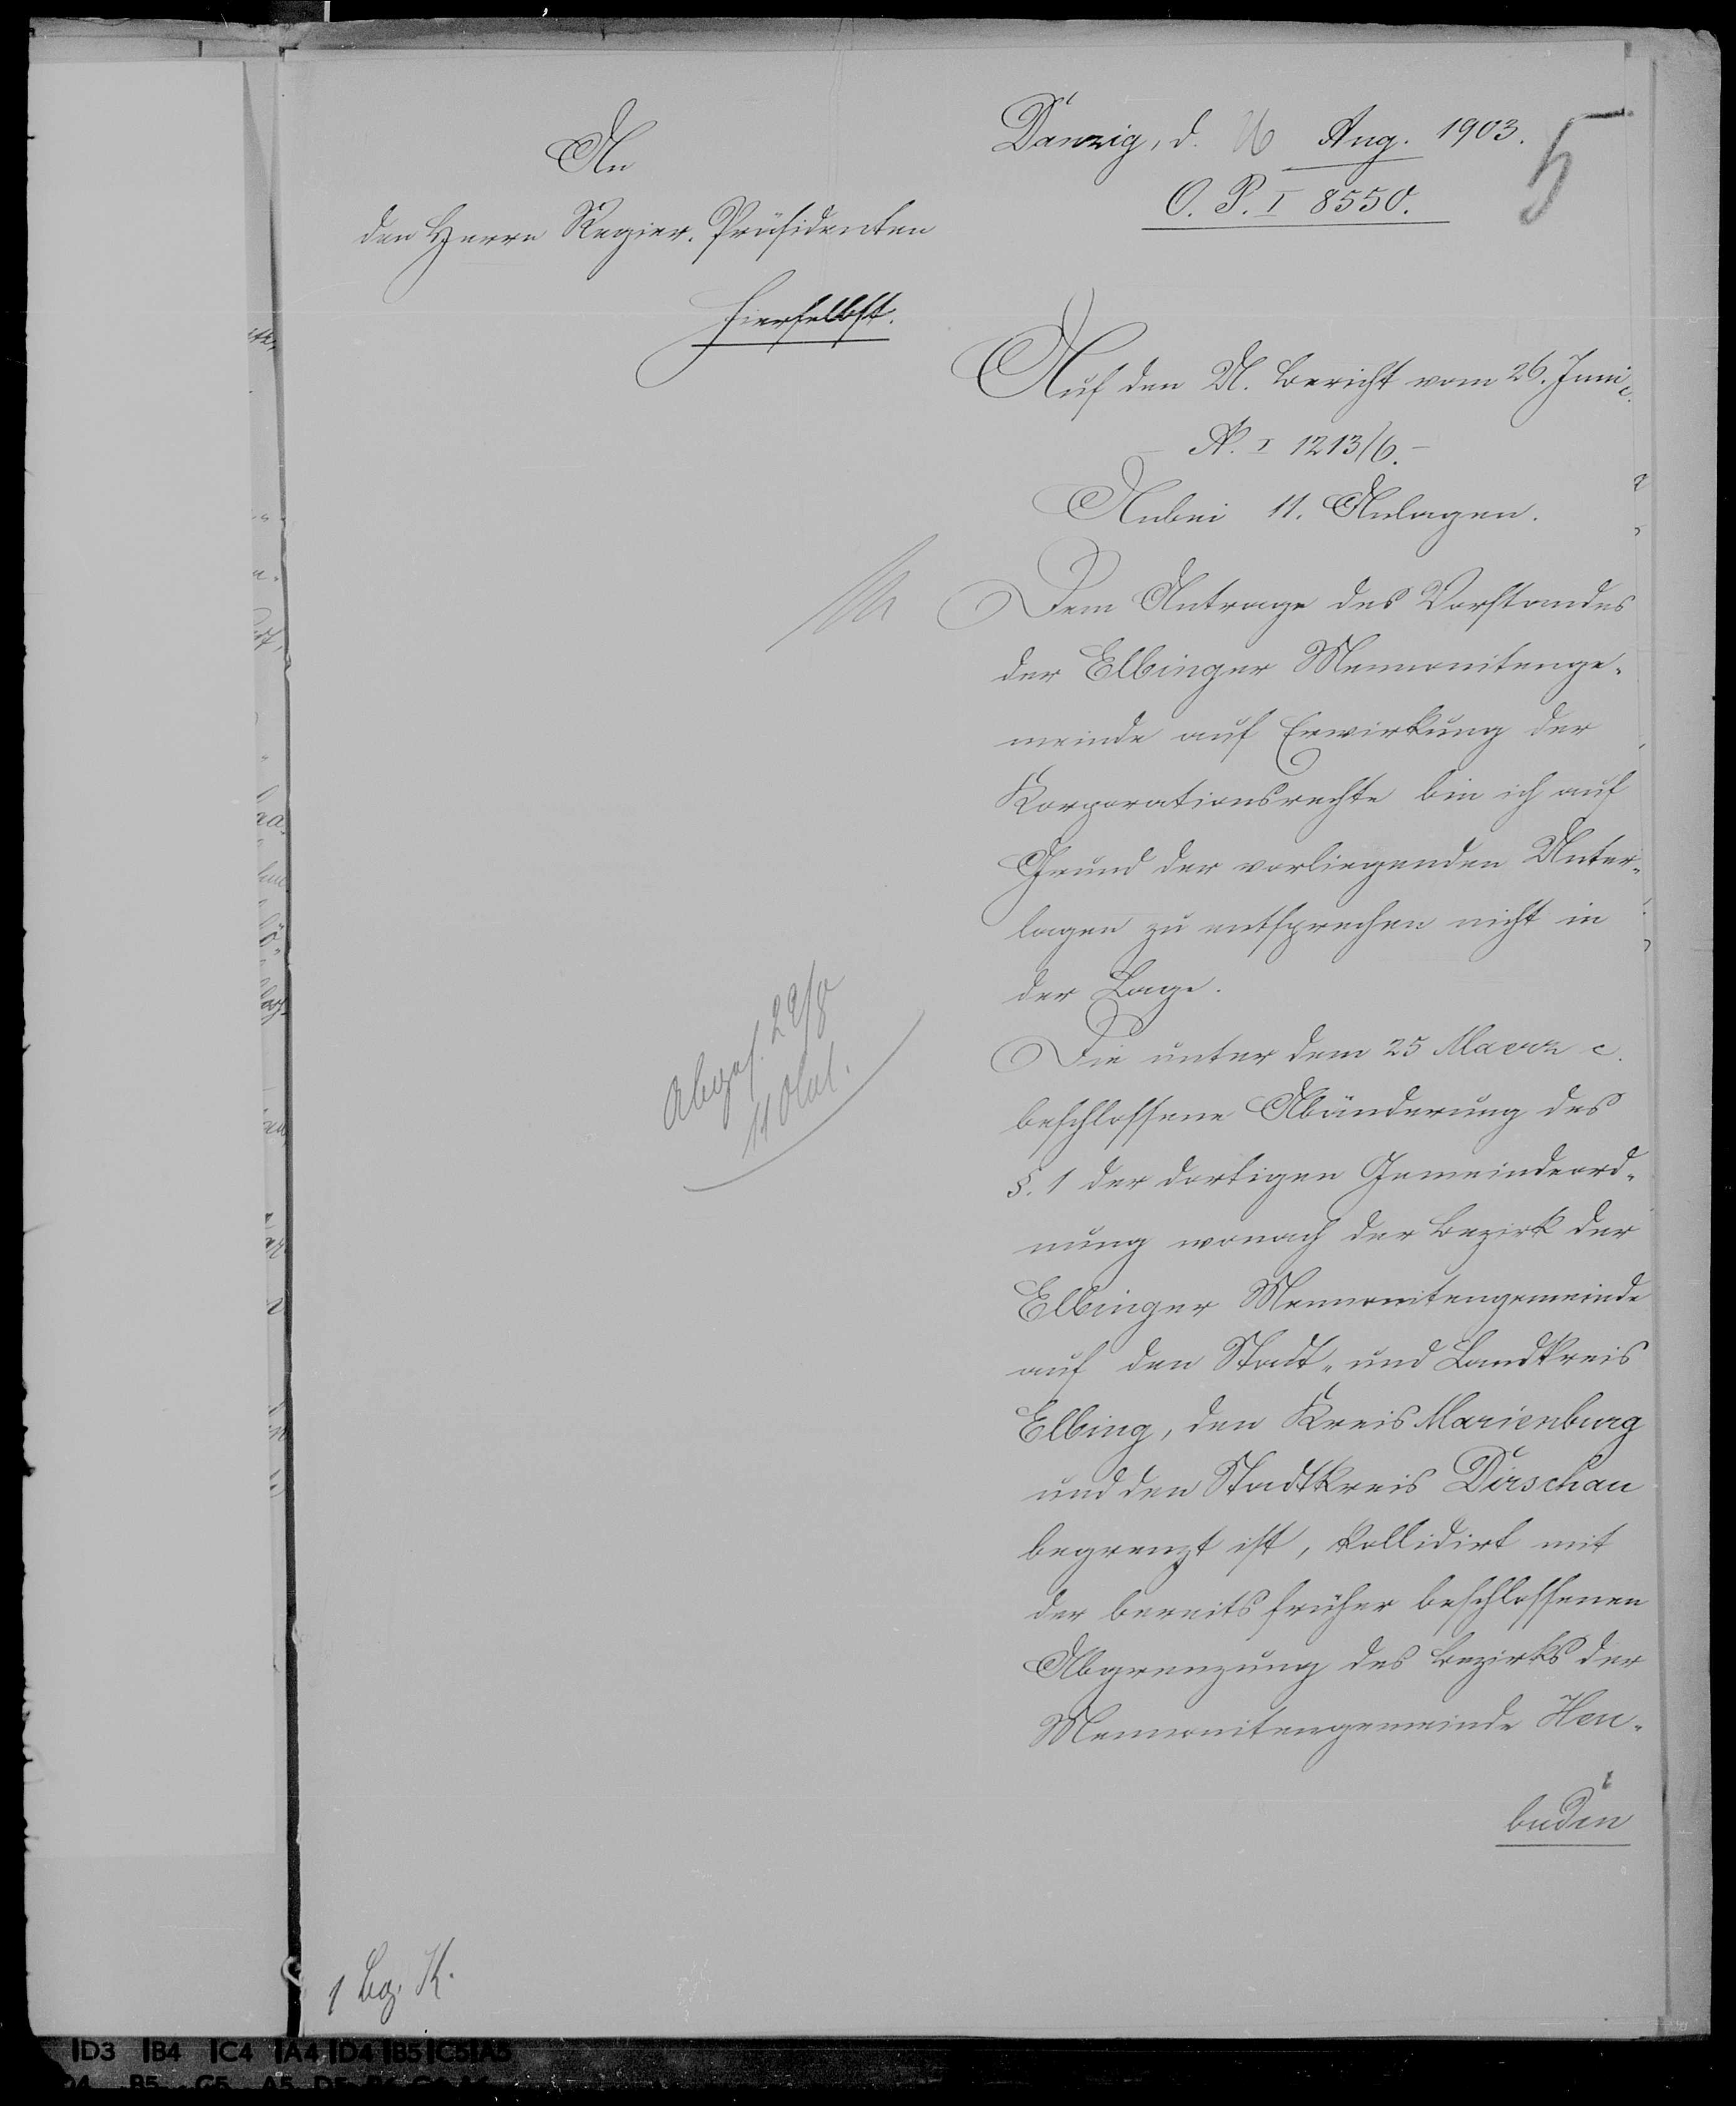 An
den Herrn Regier. Präsidenten
hierselbst.
Danzig, d. 26 Aug. 1903.
5
O. P. I 8550.
Auf den U. Bericht vom 26. Juni c.
- A. I 1213/6. -
Anbei 11. Anlagen.
Dem Antrage des Vorstandes
der Elbinger Mennonitenge-
meinde auf Erwirkung der
Korporationsrechte bin ich auf
Grund der vorliegenden Unter-
lagen zu entsprechen nicht in
der Lage.
Die unter dem 25 Maerz c.
beschlossene Abänderung des
§. 1 der dortigen Gemeindeord-
nung wonach der Bezirk der
Elbinger Mennonitengemeinde
auf den Stadt- und Landkreis
Elbing, den Kreis Marienburg
und den Stadtkreis Dirschau
begrenzt ist, kollidirt mit
der bereits früher beschlossenen
Abgrenzung des Bezirks der
Mennonitengemeinde Heu-
buden
Abges. 22/8
1 Bog. K.
D3 B4 C4 A4 D4 B5 C5 A5